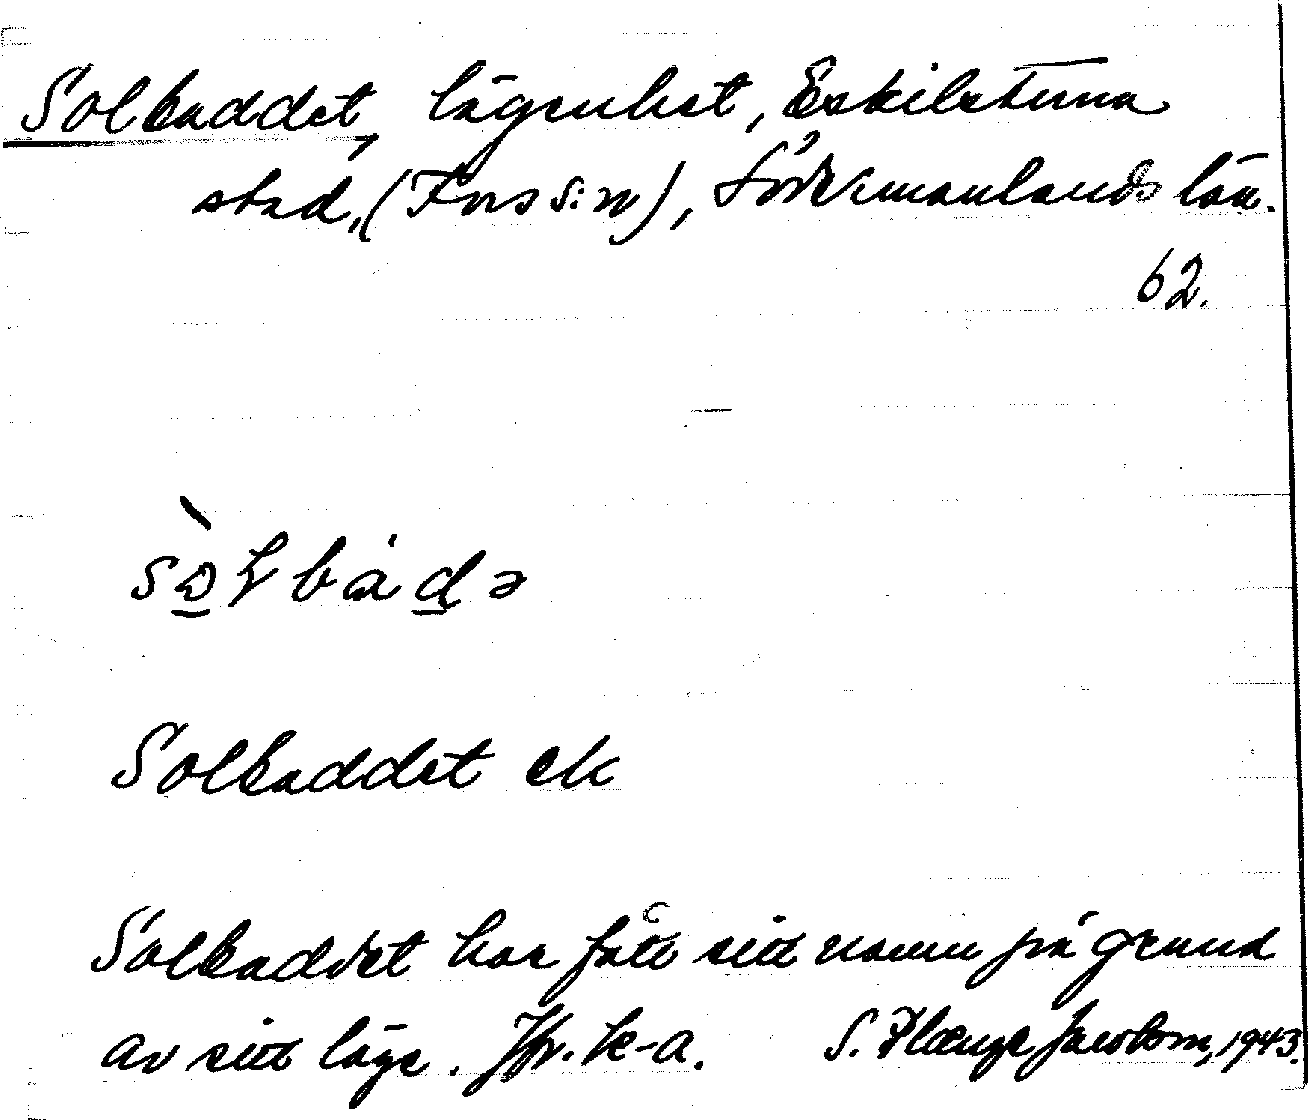 Solbaddet, lägenhet, Eskilstuna
stad, (Fors s:n), Södermanlands län.
62.
Solbaddet ek
Solbaddet har fått sitt namn på grund
av sitt läge. Jfr. k-a. S. Jacobson, 1943.